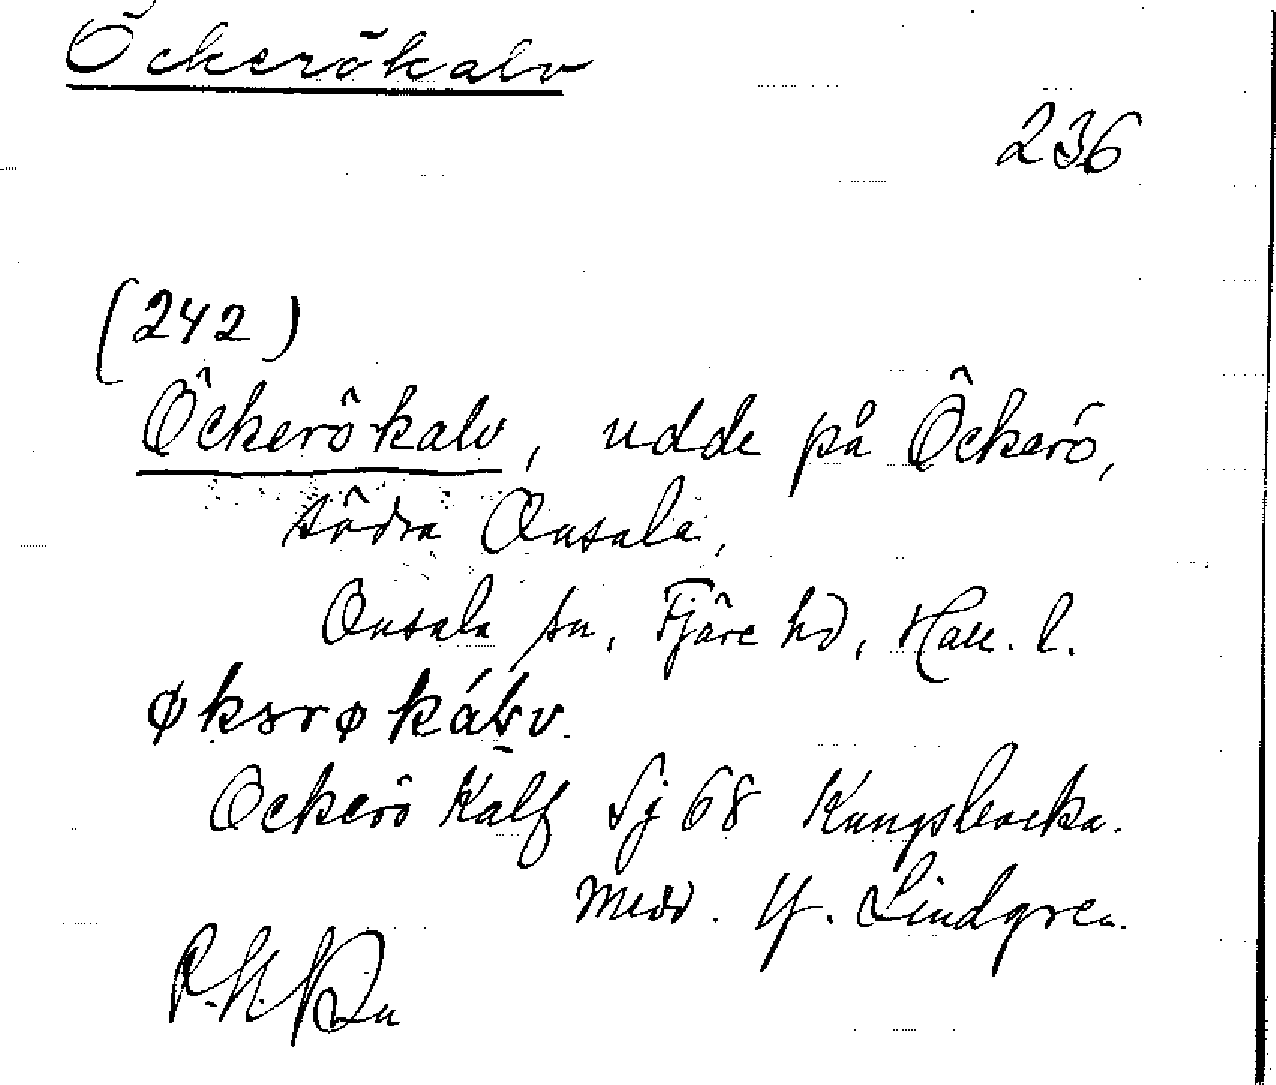 Öckerökalv
236
(242)
Öckerökalv, udde på Öckerö,
södra Onsala,
Onsala sn, Fjäre hd, Hall. l.
økərøkálv.
Öckerö Kalf Sj 68 Kungsbacka.
Medd. Y. Lindgren.